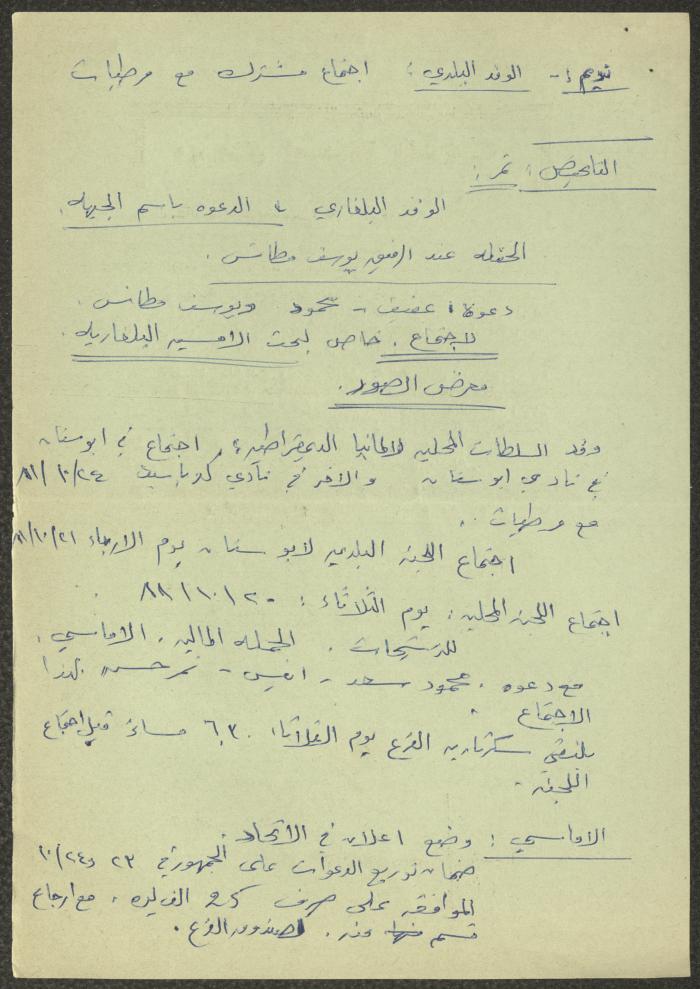 الوفد البلدي : اجتماع مشترك مع مرطبات
التلخيص : تمر :
الوفد البلغاري الدعوه باسم الجبهه .
الحفله عند الرفيق يوسف مطانس .
دعوة : عفيف - محمود ويوسف مطانس .
لاجتماع . خاص لبحث الامسيه البلغاريه .
معرض الصور .
وفد السلطات المحليه لالمانيا الديمقراطيه ، اجتماع في ابوسنان
في نادي ابوسنان والاخر في نادي كفرياسيف ٢٤/١٠/٨١
مع مرطبات ..
اجتماع اللجنه البلديه لابوسنان يوم الاربعاء ٢١/١٠/٨١
اجتماع اللجنه المحليه : يوم الثلاثاء : ٢٠/١٠/٨١ .
للترشيحات . الحمله الماليه . الاماسي .
مع دعوه . محمود سعد - انيس - نمر حسين لهذا
الاجتماع .
يلتقي سكرتاريه الفرع يوم الثلاثاء ٦,٣٠ مساء قبل اجتماع
اللجنه .
الاماسي : وضع اعلان في الاتحاد .
ضمان توزيع الدعوات على الجمهور في ٢٣ و ٢٤/١٠
الموافقه على صرف الف ليره . مع ارجاع
قسم منها منه . لصندوق الفرع .